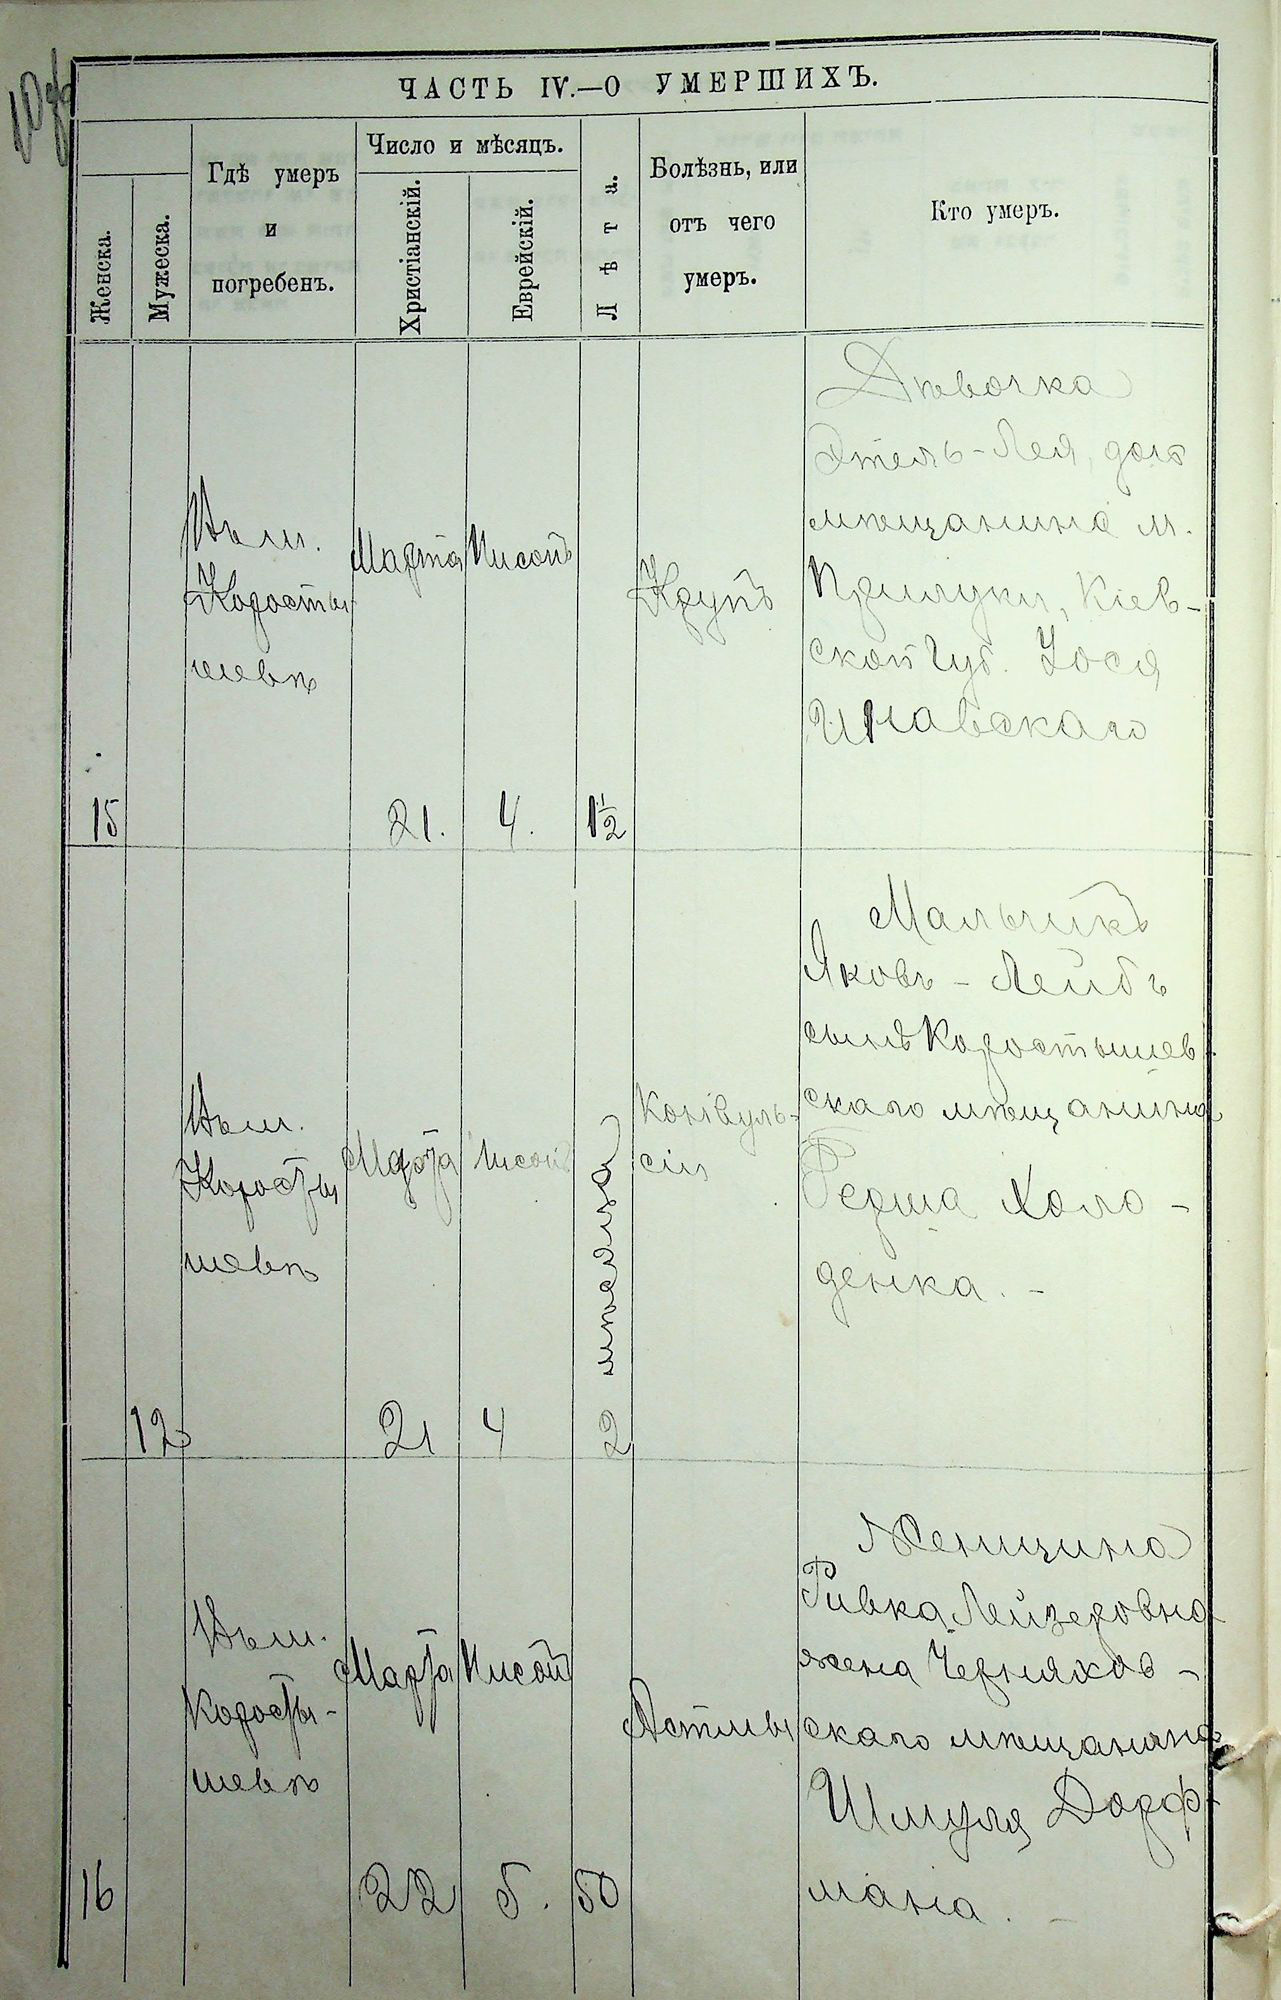 ЧАСТЬ IV.—О УМЕРШИХЪ.
Женска.
Мужеска.
Гдѣ умеръ
и
погребенъ.
Число и мѣсяцъ.
Христіанскій.
Еврейскій.
Лѣта.
Болѣзнь, или
отъ чего
умеръ.
Кто умеръ.
15
Въ м.
Коросты
шевѣ
Марта
21.
Нисонъ
4.
1 1/2
Крупъ
Дѣвочка
Этель-Лея, доч
мѣщанина м.
Прилуки, Кіев-
ской Губ. Іося
12
Въ м.
Коросты
шевѣ
Марта
21
Нисонъ
4
2 мѣсяца
Конвуль-
сіи
Мальчикъ
Яковъ - Лейбъ
сынъ Коростышев-
скаго мѣщанина
Герша Холо-
денка. -
16
Въ м.
Коросты-
шевѣ
Марта
22
Нисонъ
5.
50
Астмы
Женщина
Ривка Лейзеровна
жена Черняхов-
скаго мѣщанина
Шмуля Дорф-
мана. -